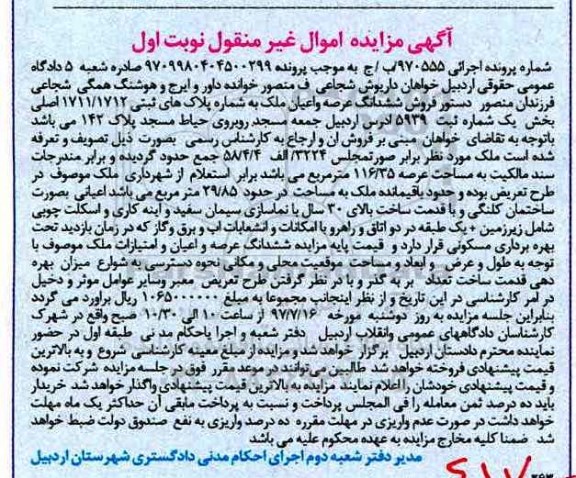 آگهی مزایده اموال غیر منقول نوبت اول
شماره پرونده اجرائی ۹۷۰۵۵۵/ب /ج به موجب پرونده ۹۷۰۹۹۸۰۴۰۴۵۰۰۲۹۹ صادره شعبه ۵ دادگاه
عمومی حقوقی اردبیل خواهان داریوش شجاعی ف منصور خوانده داور و ایرج و هوشنگ همگی شجاعی
فرزندان منصور دستور فروش ششدانگ عرصه واعیان ملک به شماره پلاک های ثبتی ۱۷۱۱/۱۷۱۲ اصلی
بخش یک شماره ثبت ۵۹۳۹ ادرس اردبیل جمعه مسجد روبروی حیاط مسجد پلاک ۱۴۲ می باشد
باتوجه به تقاضای خواهان مبنی بر فروش ان و ارجاع به کارشناس رسمی بصورت ذیل تصویف و تعرفه
شده است ملک مورد نظر برابر صورتمجلس ۳۲۲۴/الف ۵۸/۴/۴ جمع حدود گردیده و برابر مندرجات
سند مالکیت به مساحت عرصه ۱۱۶/۳۵ مترمربع می باشد برابر استعلام از شهرداری ملک موصوف در
طرح تعریض بوده و حدود باقیمانده ملک به مساحت در حدود ۲۹/۸۵ متر مربع می باشد اعیانی بصورت
ساختمان کلنگی و با قدمت ساخت بالای ۳۰ سال با نماسازی سیمان سفید و آینه کاری و اسکلت چوبی
شامل زیرزمین + یک طبقه در دو اتاق و راهرو با امکانات و انشعابات اب و برق وگاز که در زمان بازدید تحت
بهره برداری مسکونی قرار دارد و قیمت پایه مزایده ششدانگ عرصه و اعیان و امتیازات ملک موصوف با
توجه به طول و عرض و ابعاد و مساحت موقعیت محلی و مکانی نحوه دسترسی به شوارع میزان بهره
دهی قدمت ساخت تعداد بر به گذر و با در نظر گرفتن طرح تعریض معبر وسایر عوامل موثر و دخیل
در امر کارشناسی در این تاریخ و از نظر اینجانب مجموعا به مبلغ ۱۰۶۵۰۰۰۰۰۰ ریال براورد می گردد
بنابراین جلسه مزایده به روز دوشنبه مورخه ۹۷/۷/۱۶ از ساعت ۱۰ الی ۱۰/۳۰ صبح واقع در شهرک
کارشناسان دادگاههای عمومی وانقلاب اردبیل دفتر شعبه و اجرا یاحکام مدنی طبقه اول در حضور
نماینده محترم دادستان اردبیل برگزار خواهد شد و مزایده از مبلغ معینه کارشناسی شروع و به بالاترین
قیمت پیشنهادی فروخته خواهد شد طالبین می‌توانند در موعد مقرر فوق در جلسه مزایده شرکت نموده
و قیمت پیشنهادی خودشان را اعلام نمایند مزایده به بالاترین قیمت پیشنهادی واگذار خواهد شد خریدار
باید ده درصد ثمن معامله را فی المجلس پرداخت و نسبت به پرداخت مابقی آن حداکثر یک ماه مهلت
خواهد داشت در صورت عدم واریزی در مهلت مقرره ده درصد واریزی به نفع صندوق دولت ضبط خواهد
شد ضمنا کلیه مخارج مزایده به عهده محکوم علیه می باشد
مدیر دفتر شعبه دوم اجرای احکام مدنی دادگستری شهرستان اردبیل